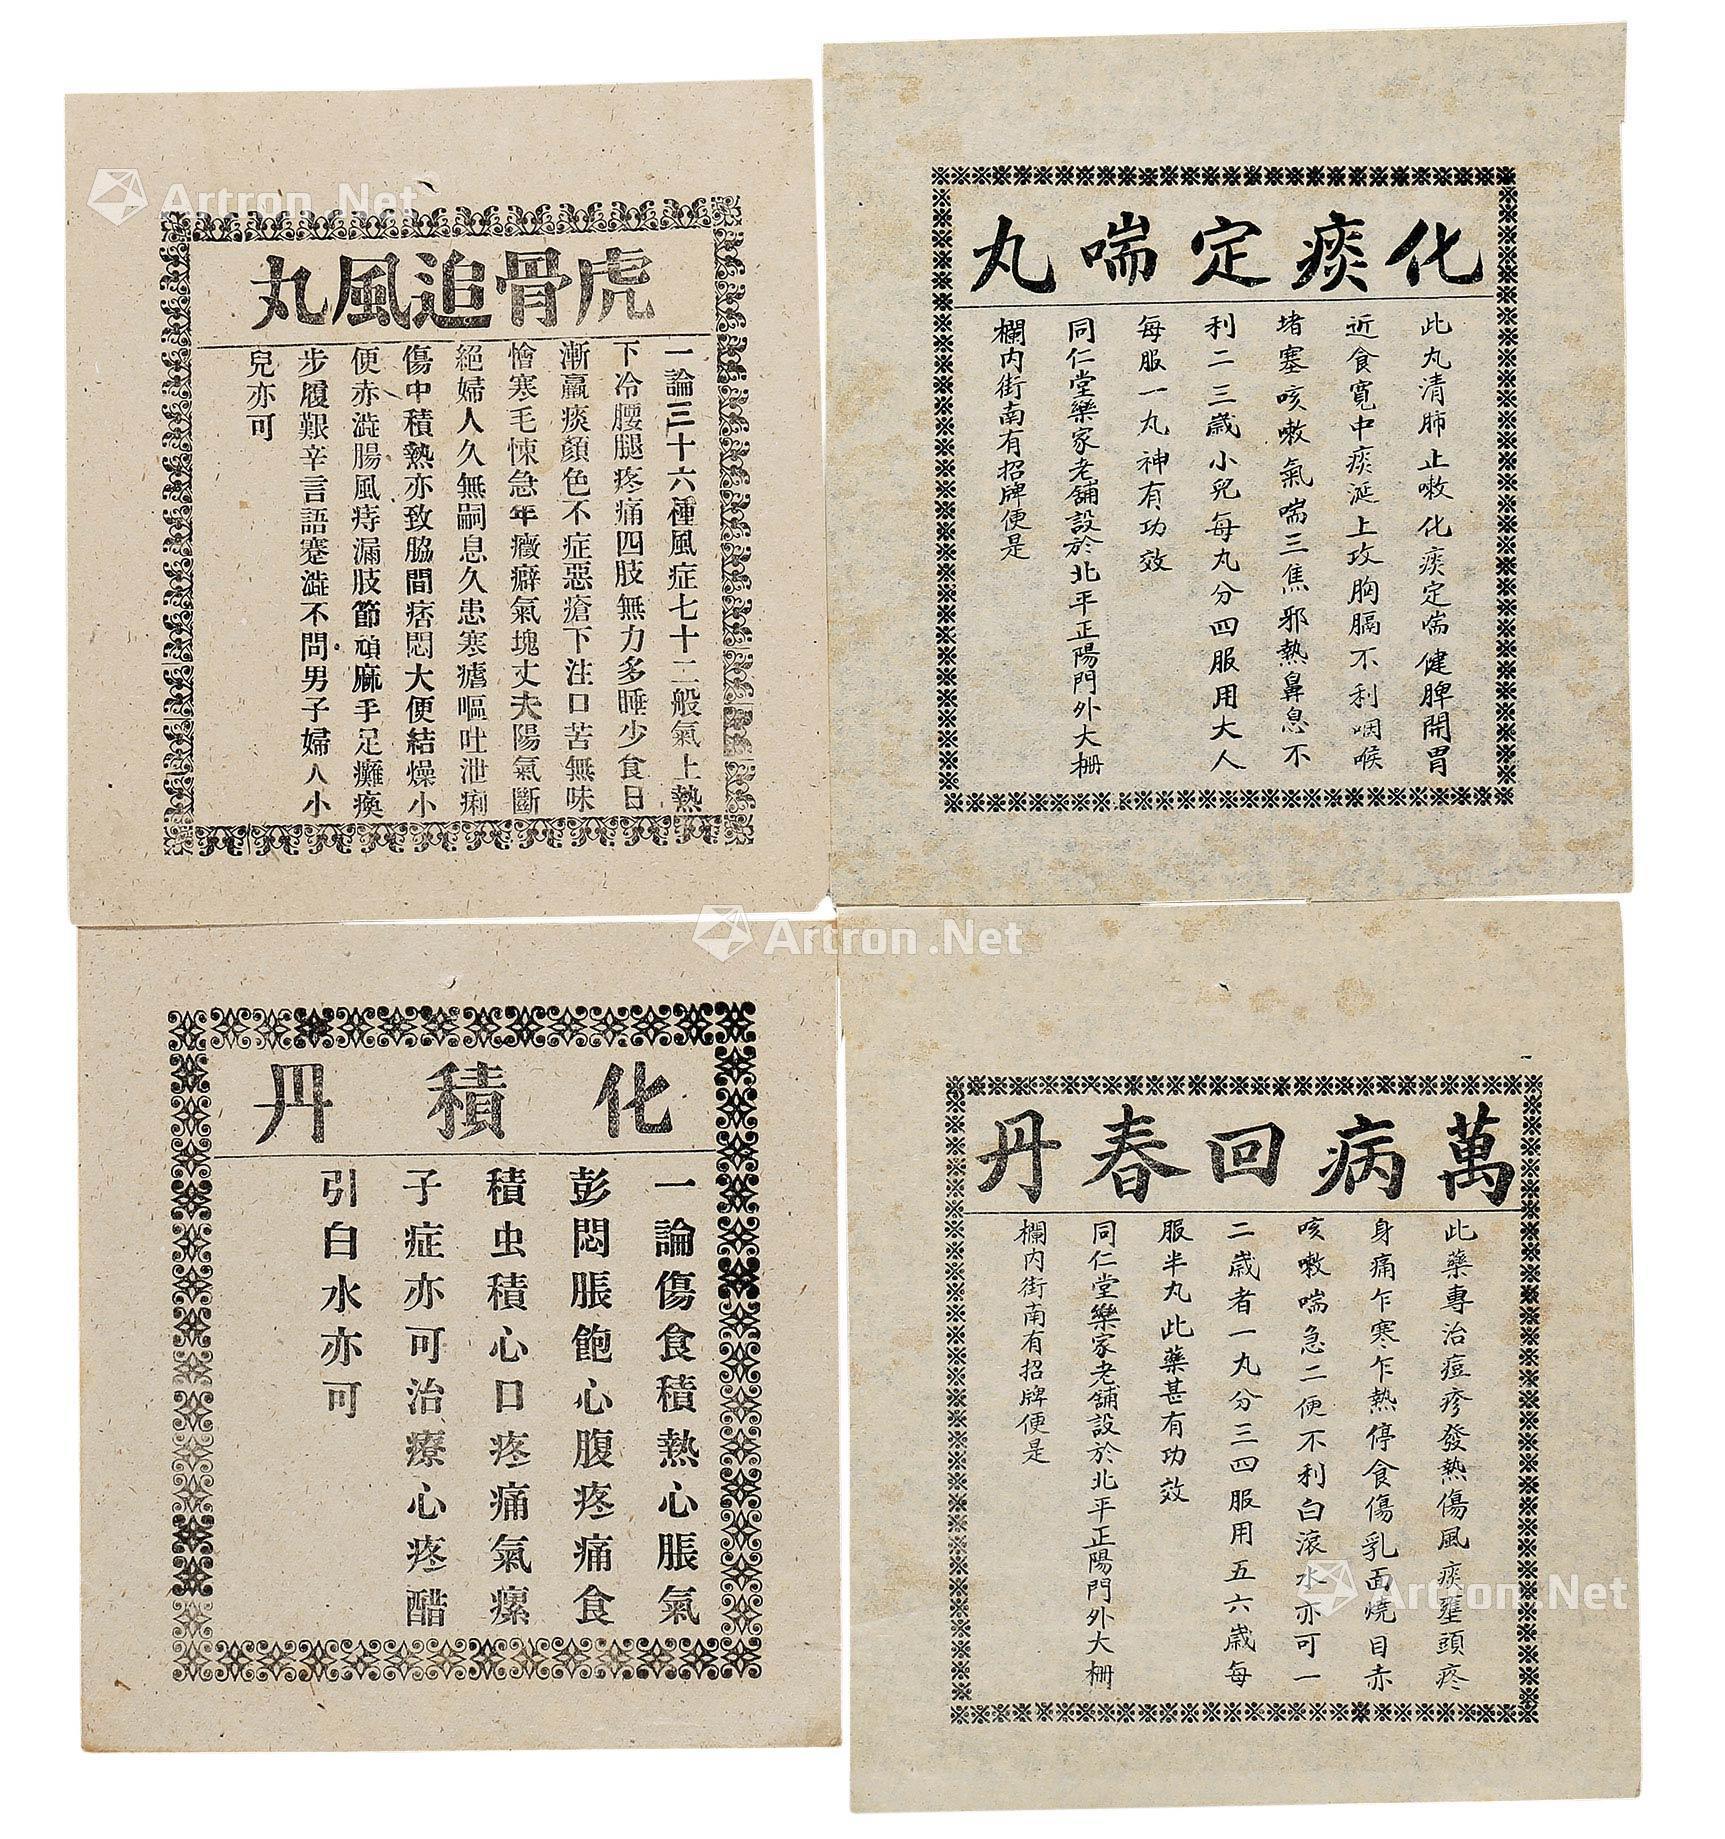 化痰定喘丸
此丸清肺止嗽化痰定喘健脾開胃
近食寬中痰涎上攻胸膈不利咽喉
堵塞咳嗽氣喘三焦邪熱鼻息不
利二三歲小兒每丸分四服用大人
每服一丸神有功效
同仁堂樂家老舖設於北平正陽門外大柵
欄內街南有招牌便是
虎骨追風丸
一論三十六種風症七十二般氣上熱
下冷腰腿疼痛四肢無力多睡少食日
漸羸痰顏色不症惡瘡下注口苦無味
憎寒毛悚急年癥癖氣塊丈夫陽氣斷
絕婦人久無嗣息久患寒瘧嘔吐泄痢
傷中積熱亦致脇間痞悶大便結燥小
便赤澁腸風痔漏肢節頑麻手足癱瘓
步履艱辛言語蹇澁不問男子婦人小
兒亦可
萬病回春丹
此藥專治痘疹發熱傷風痰壅頭疼
身痛乍寒乍熱停食傷乳面燒目赤
咳嗽喘急二便不利白滾水亦可一
二歲者一丸分三四服用五六歲每
服半丸此藥甚有功效
同仁堂樂家老舖設於北平正陽門外大柵
欄內街南有招牌便是
化積丹
一論傷食積熱心脹氣
彭悶脹飽心腹疼痛食
積虫積心口疼痛氣瘰
子症亦可治療心疼醋
引白水亦可
Artron.Net
Artron.Net
Artron.Net